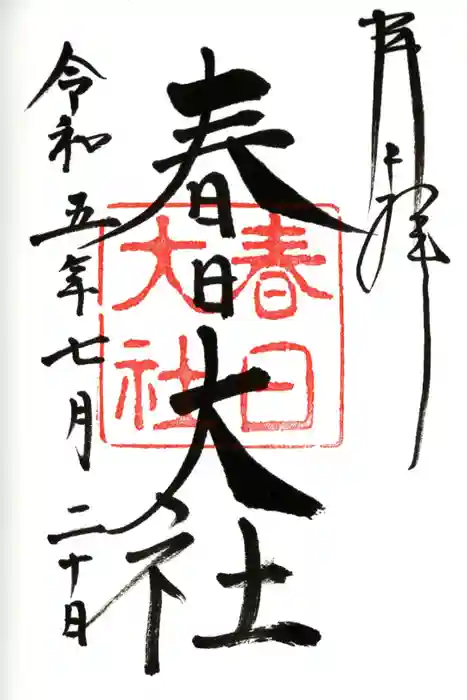 奉拝
春日大社
春日
大社
令和五年七月二十日